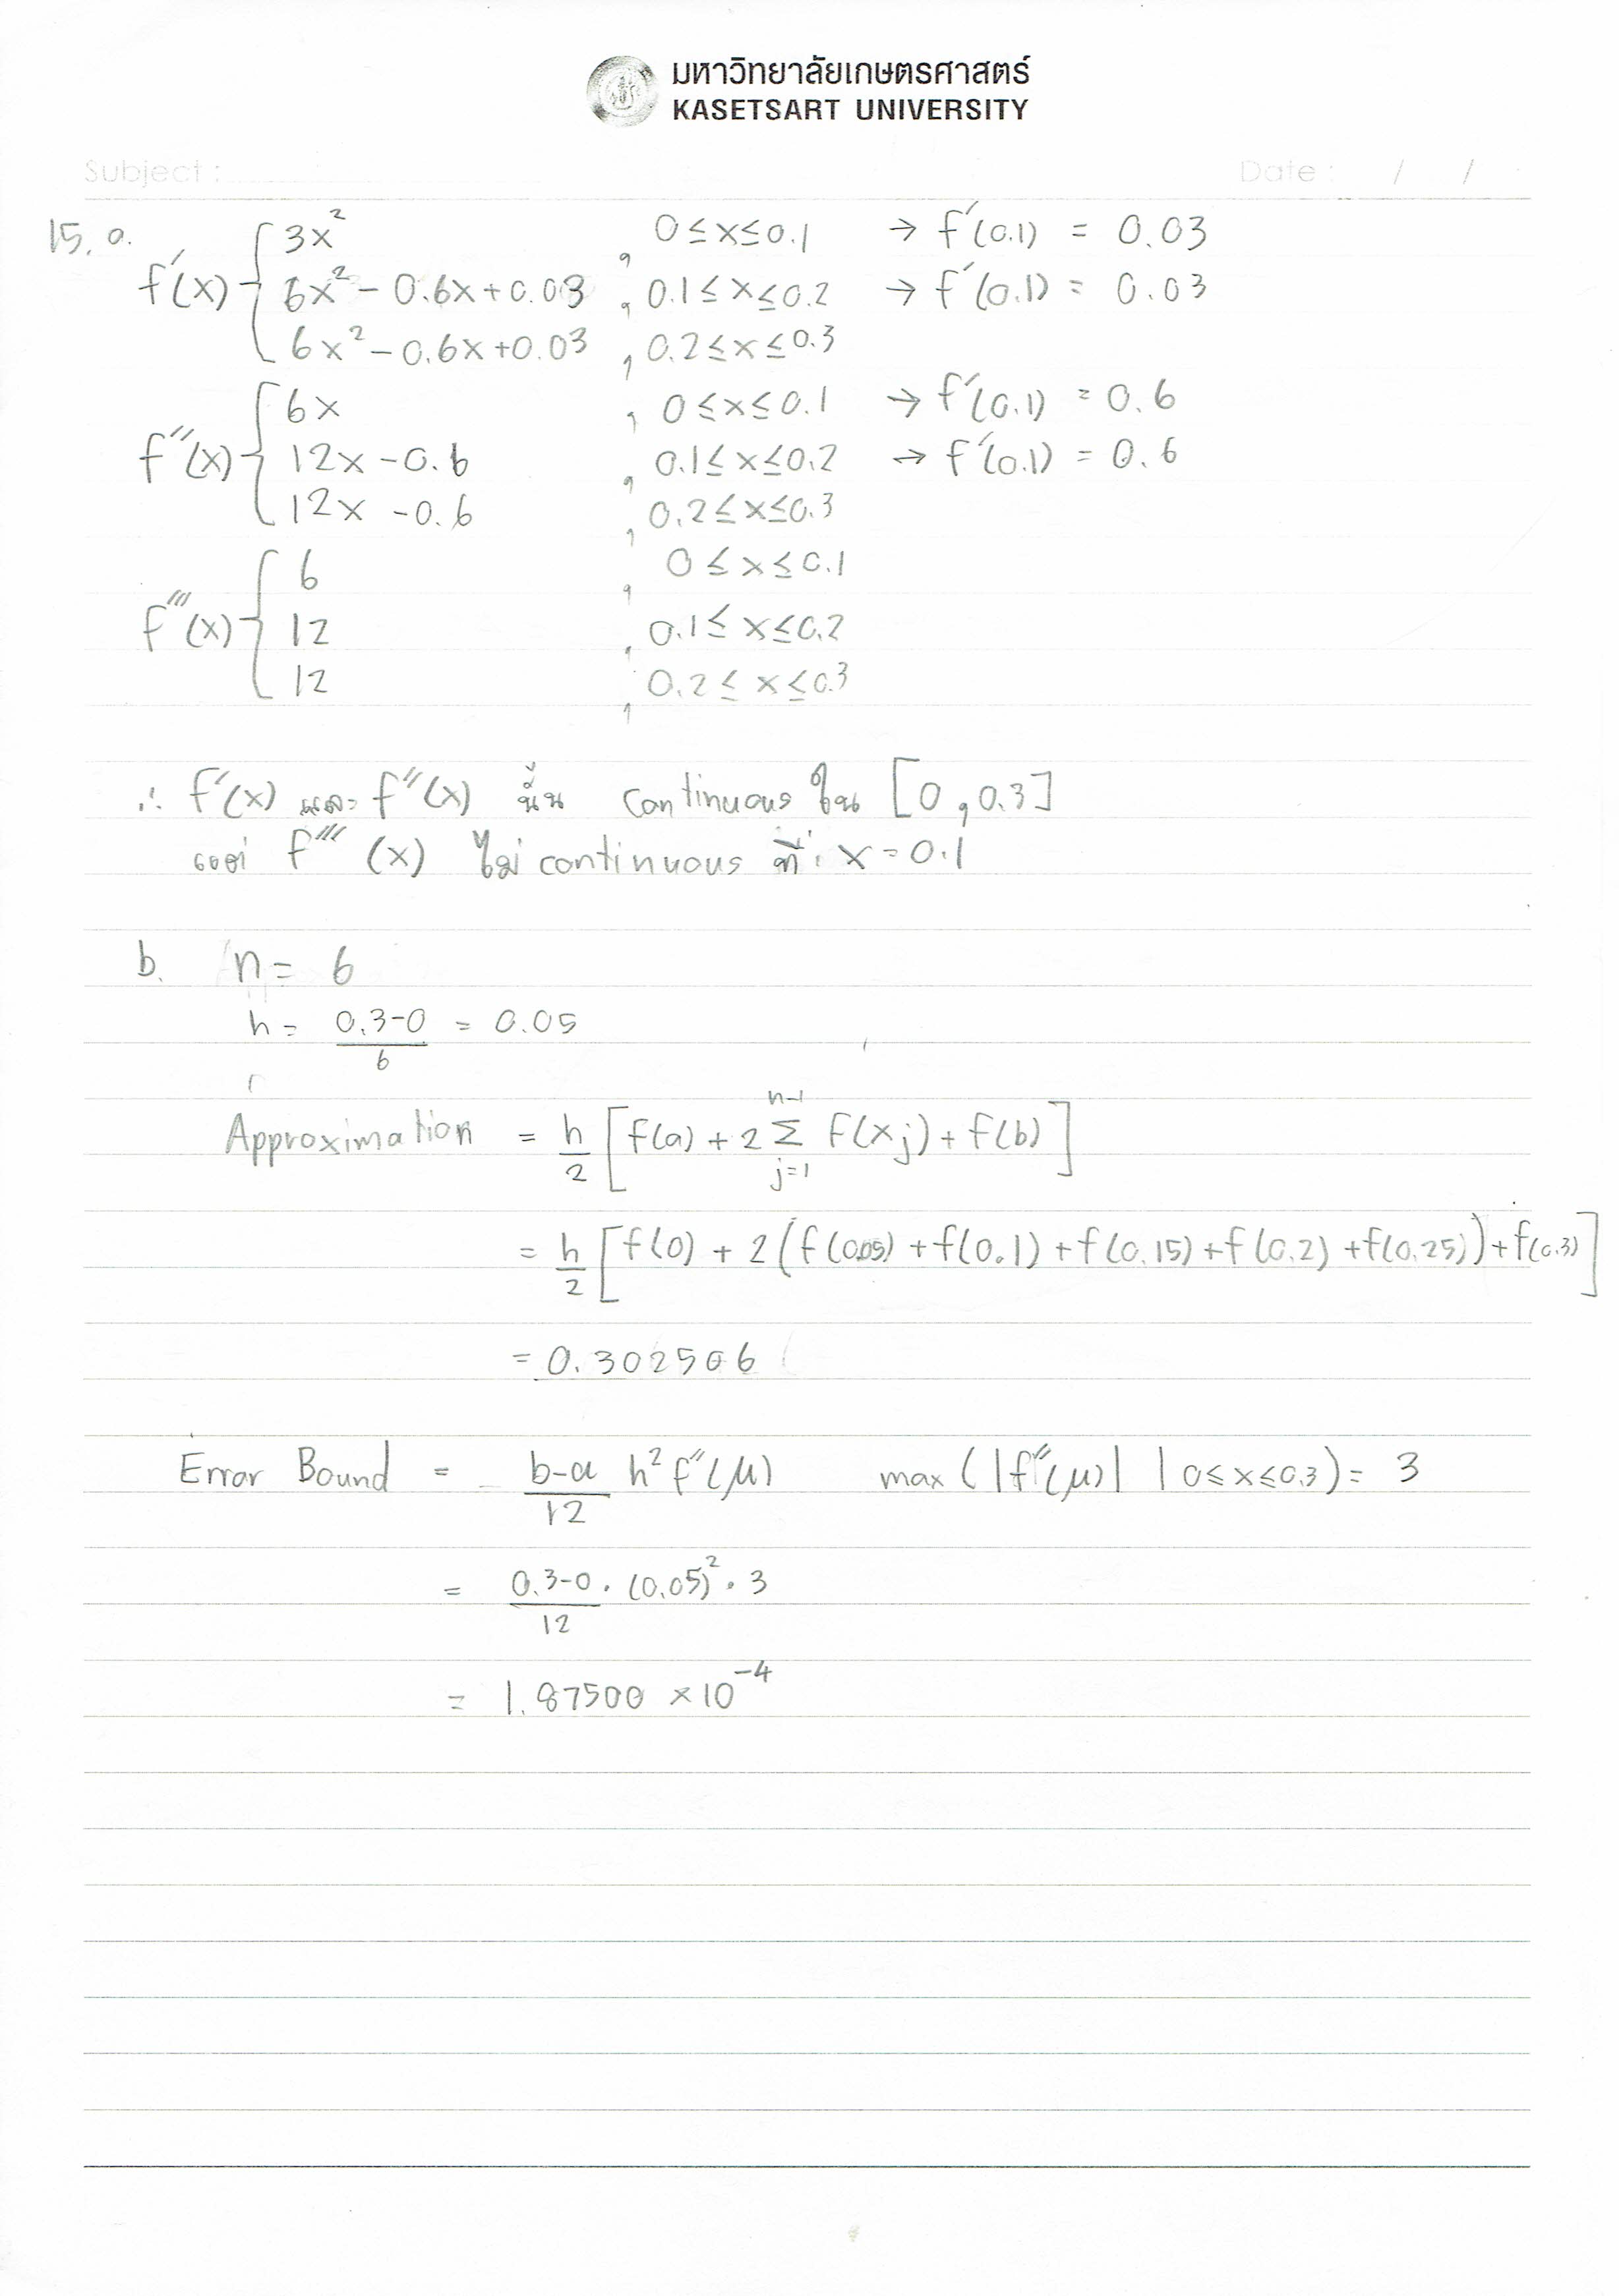 มหาวิทยาลัยเกษตรศาสตร์
KASETSART UNIVERSITY
Subject : Date : / /
15. a.
f′(x) { 3x² , 0 ≤ x ≤ 0.1 → f′(0.1) = 0.03
6x² - 0.6x + 0.03 , 0.1 ≤ x ≤ 0.2 → f′(0.1) = 0.03
6x² - 0.6x + 0.03 , 0.2 ≤ x ≤ 0.3
f″(x) { 6x , 0 ≤ x ≤ 0.1 → f′(0.1) = 0.6
12x - 0.6 , 0.1 ≤ x ≤ 0.2 → f′(0.1) = 0.6
12x - 0.6 , 0.2 ≤ x ≤ 0.3
f‴(x) { 6 , 0 ≤ x ≤ 0.1
12 , 0.1 ≤ x ≤ 0.2
12 , 0.2 ≤ x ≤ 0.3
∴ f′(x) และ f″(x) นั้น continuous ใน [0, 0.3]
แต่ f‴(x) ไม่ continuous ที่ x = 0.1
b. n = 6
h = (0.3-0)/6 = 0.05
Approximation = h/2 [f(a) + 2 Σ_{j=1}^{n-1} f(xj) + f(b)]
= h/2 [f(0) + 2(f(0.05) + f(0.1) + f(0.15) + f(0.2) + f(0.25)) + f(0.3)]
= 0.302506
Error Bound = (b-a)/12 h² f″(μ) max(|f″(μ)| | 0 ≤ x ≤ 0.3) = 3
= (0.3-0)/12 · (0.05)² · 3
= 1.87500 × 10⁻⁴